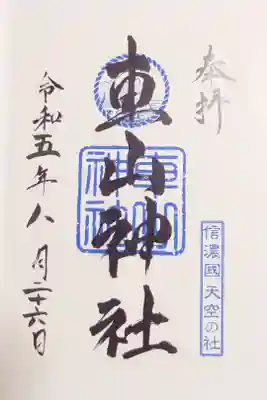 奉拝
信濃國 天空の社
車山神社
車山神社
令和五年八月二十六日